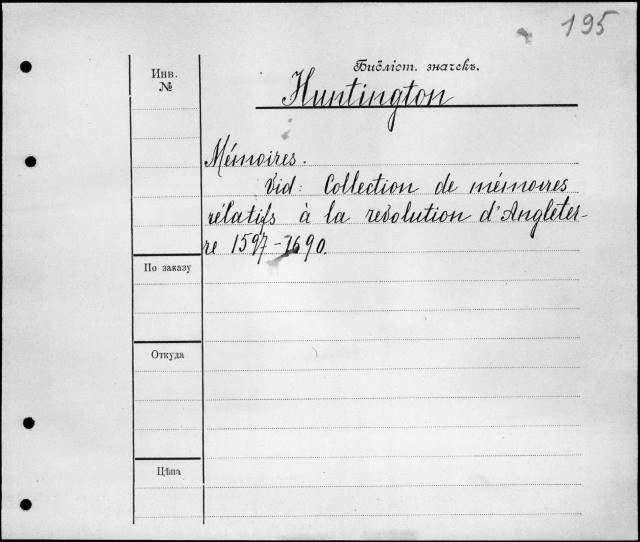 195
Инв. №
Библіот. значекъ.
Huntington
Mémoires.
Vid: Collection de mémoires
rélatifs à la revolution d'Angleter-
re 1597-1690.
По заказу
Откуда
Цѣна